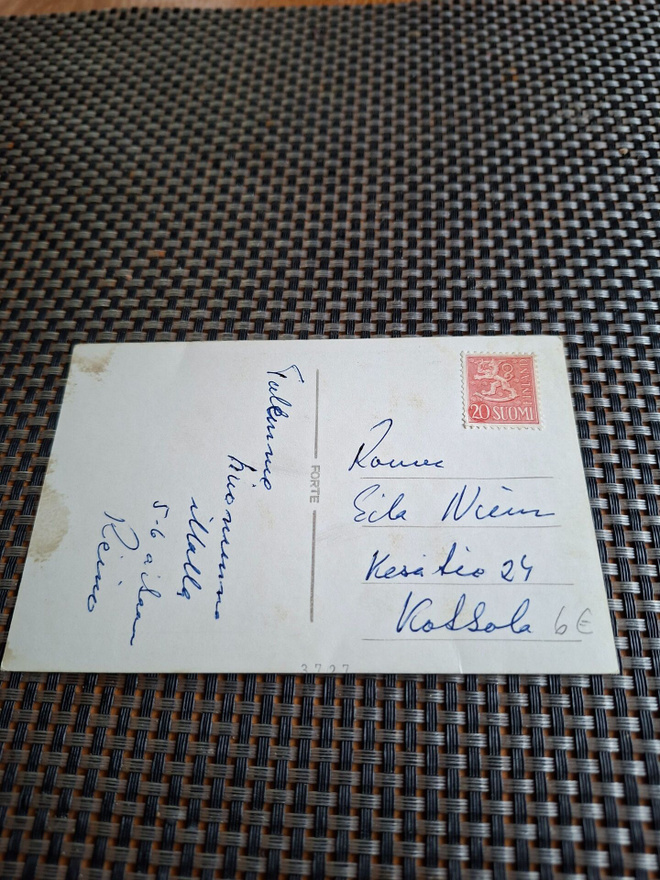 Tulemme
illalla
5-6 aikaan
Reino
FORTE
3727
20 SUOMI
Rouva
Eila Niemi
Kesätie 24
6 €